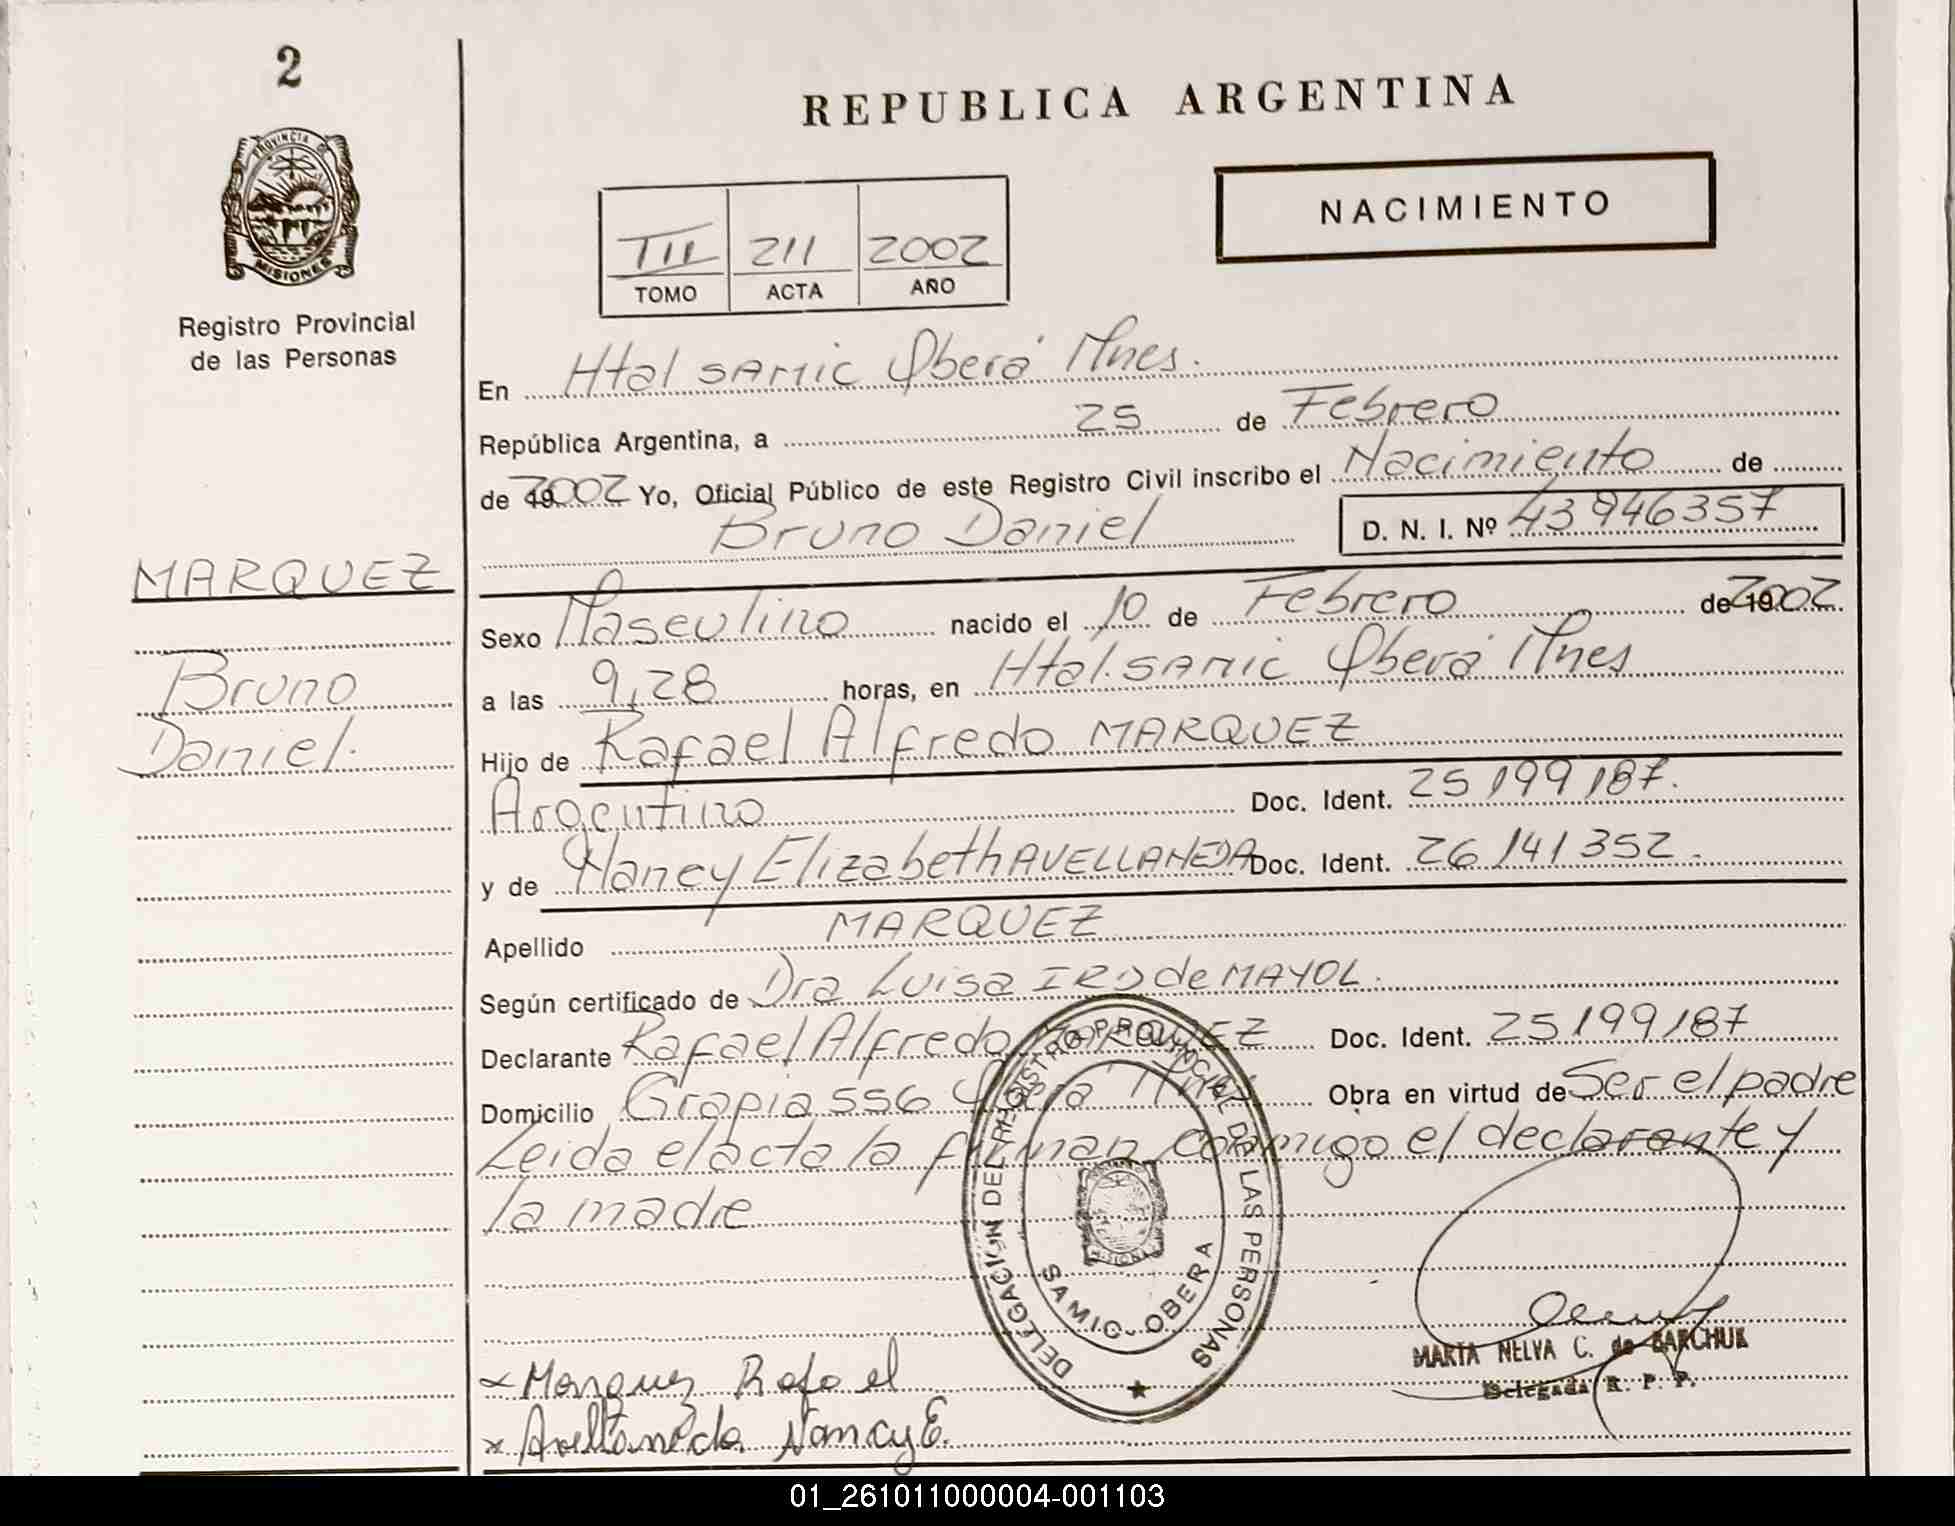 2
REPUBLICA ARGENTINA
PROVINCIA DE
MISIONES
Registro Provincial
de las Personas
NACIMIENTO
III 211 2002
TOMO ACTA AÑO
En Htal SAMIC Oberá Mnes.
República Argentina, a 25 de Febrero
de 19 2002 Yo, Oficial Público de este Registro Civil inscribo el Nacimiento de
Bruno Daniel D. N. I. Nº 43946357
MARQUEZ
Bruno
Daniel.
Sexo Masculino nacido el 10 de Febrero de 19 2002
a las 9,28 horas, en Htal. SAMIC Oberá Mnes
Hijo de Rafael Alfredo MARQUEZ
Argentino Doc. Ident. 25199187.
y de Nancy Elizabeth AVELLANEDA Doc. Ident. 26141352.
Apellido MARQUEZ
Según certificado de Dra Luisa de MAYOL.
Declarante Rafael Alfredo MARQUEZ Doc. Ident. 25199187
Domicilio Grapia 556 Oberá Mnes Obra en virtud de Ser el padre
Leida el acta la firman conmigo el declarante y
la madre
DELEGACION DEL REGISTRO PROVINCIAL DE LAS PERSONAS
SAMIC - OBERA
MARTA NELVA C. de BARCHUK
Delegada R. P. P.
x Marquez Rafael
x Avellaneda Nancy E.
01_261011000004-001103